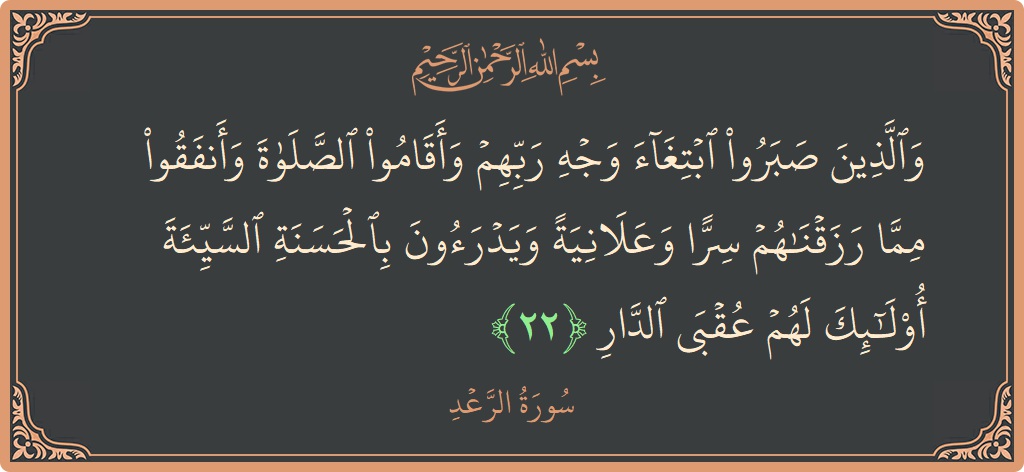 بِسْمِ اللهِ الرَّحْمٰنِ الرَّحِيْمِ
وَٱلَّذِينَ صَبَرُوا۟ ٱبْتِغَآءَ وَجْهِ رَبِّهِمْ وَأَقَامُوا۟ ٱلصَّلَوٰةَ وَأَنفَقُوا۟
مِمَّا رَزَقْنَـٰهُمْ سِرًّا وَعَلَانِيَةً وَيَدْرَءُونَ بِٱلْحَسَنَةِ ٱلسَّيِّئَةَ
أُو۟لَـٰٓئِكَ لَهُمْ عُقْبَى ٱلدَّارِ ﴿٢٢﴾
سُورَةُ الرَّعْدِ